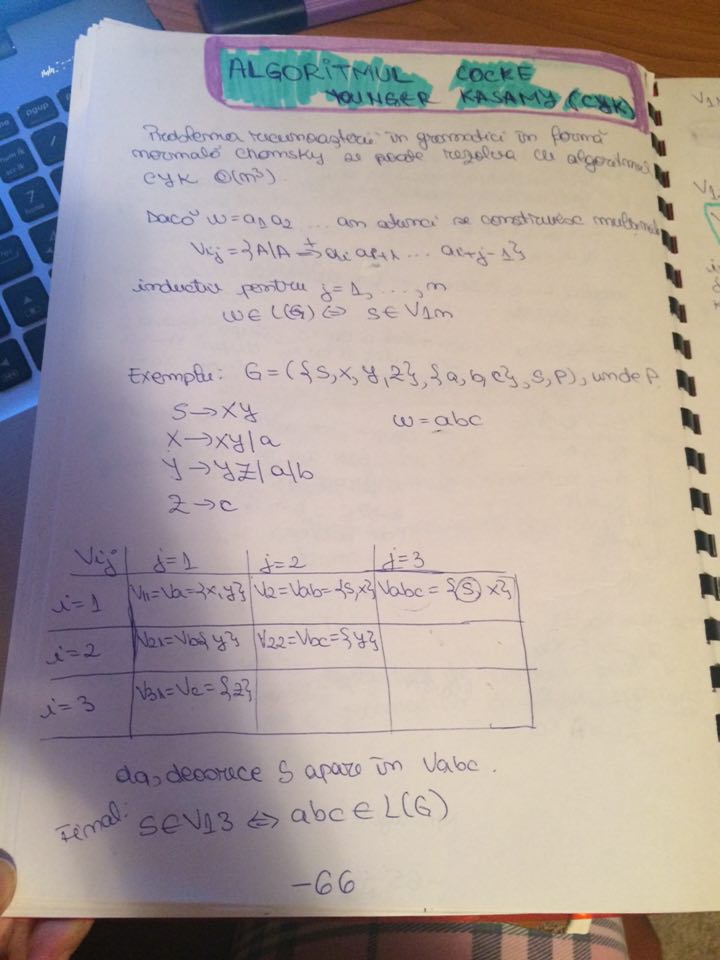 ALGORITMUL COCKE
YOUNGER KASAMY (CYK)
Problema recunoașterii în gramatici în formă
normală Chomsky se poate rezolva cu algoritmul
CYK O(n³).
Dacă w = a1 a2 ... an atunci se construiesc
Vij = {A/A ⇒+ ai ai+1 ... ai+j-1}
inductiv pentru j=1, ..., n
w ∈ L(G) ⇔ S ∈ V1n
Exemplu: G = ({S, X, Y, Z}, {a, b, c}, S, P), unde P
S → XY
w = abc
X → XY/a
Y → YZ/a/b
Z → c
Vij j=1 j=2 j=3
i=1 V11=Va={X,Y} V2=Vab={S,X} Vabc={S, X}
i=2 V21=Vb{Y} V22=Vbc={Y}
i=3 V31=Vc={Z}
da, deoarece S apare în Vabc.
Final: S∈V13 ⇔ abc ∈ L(G)
-66
V1
V1